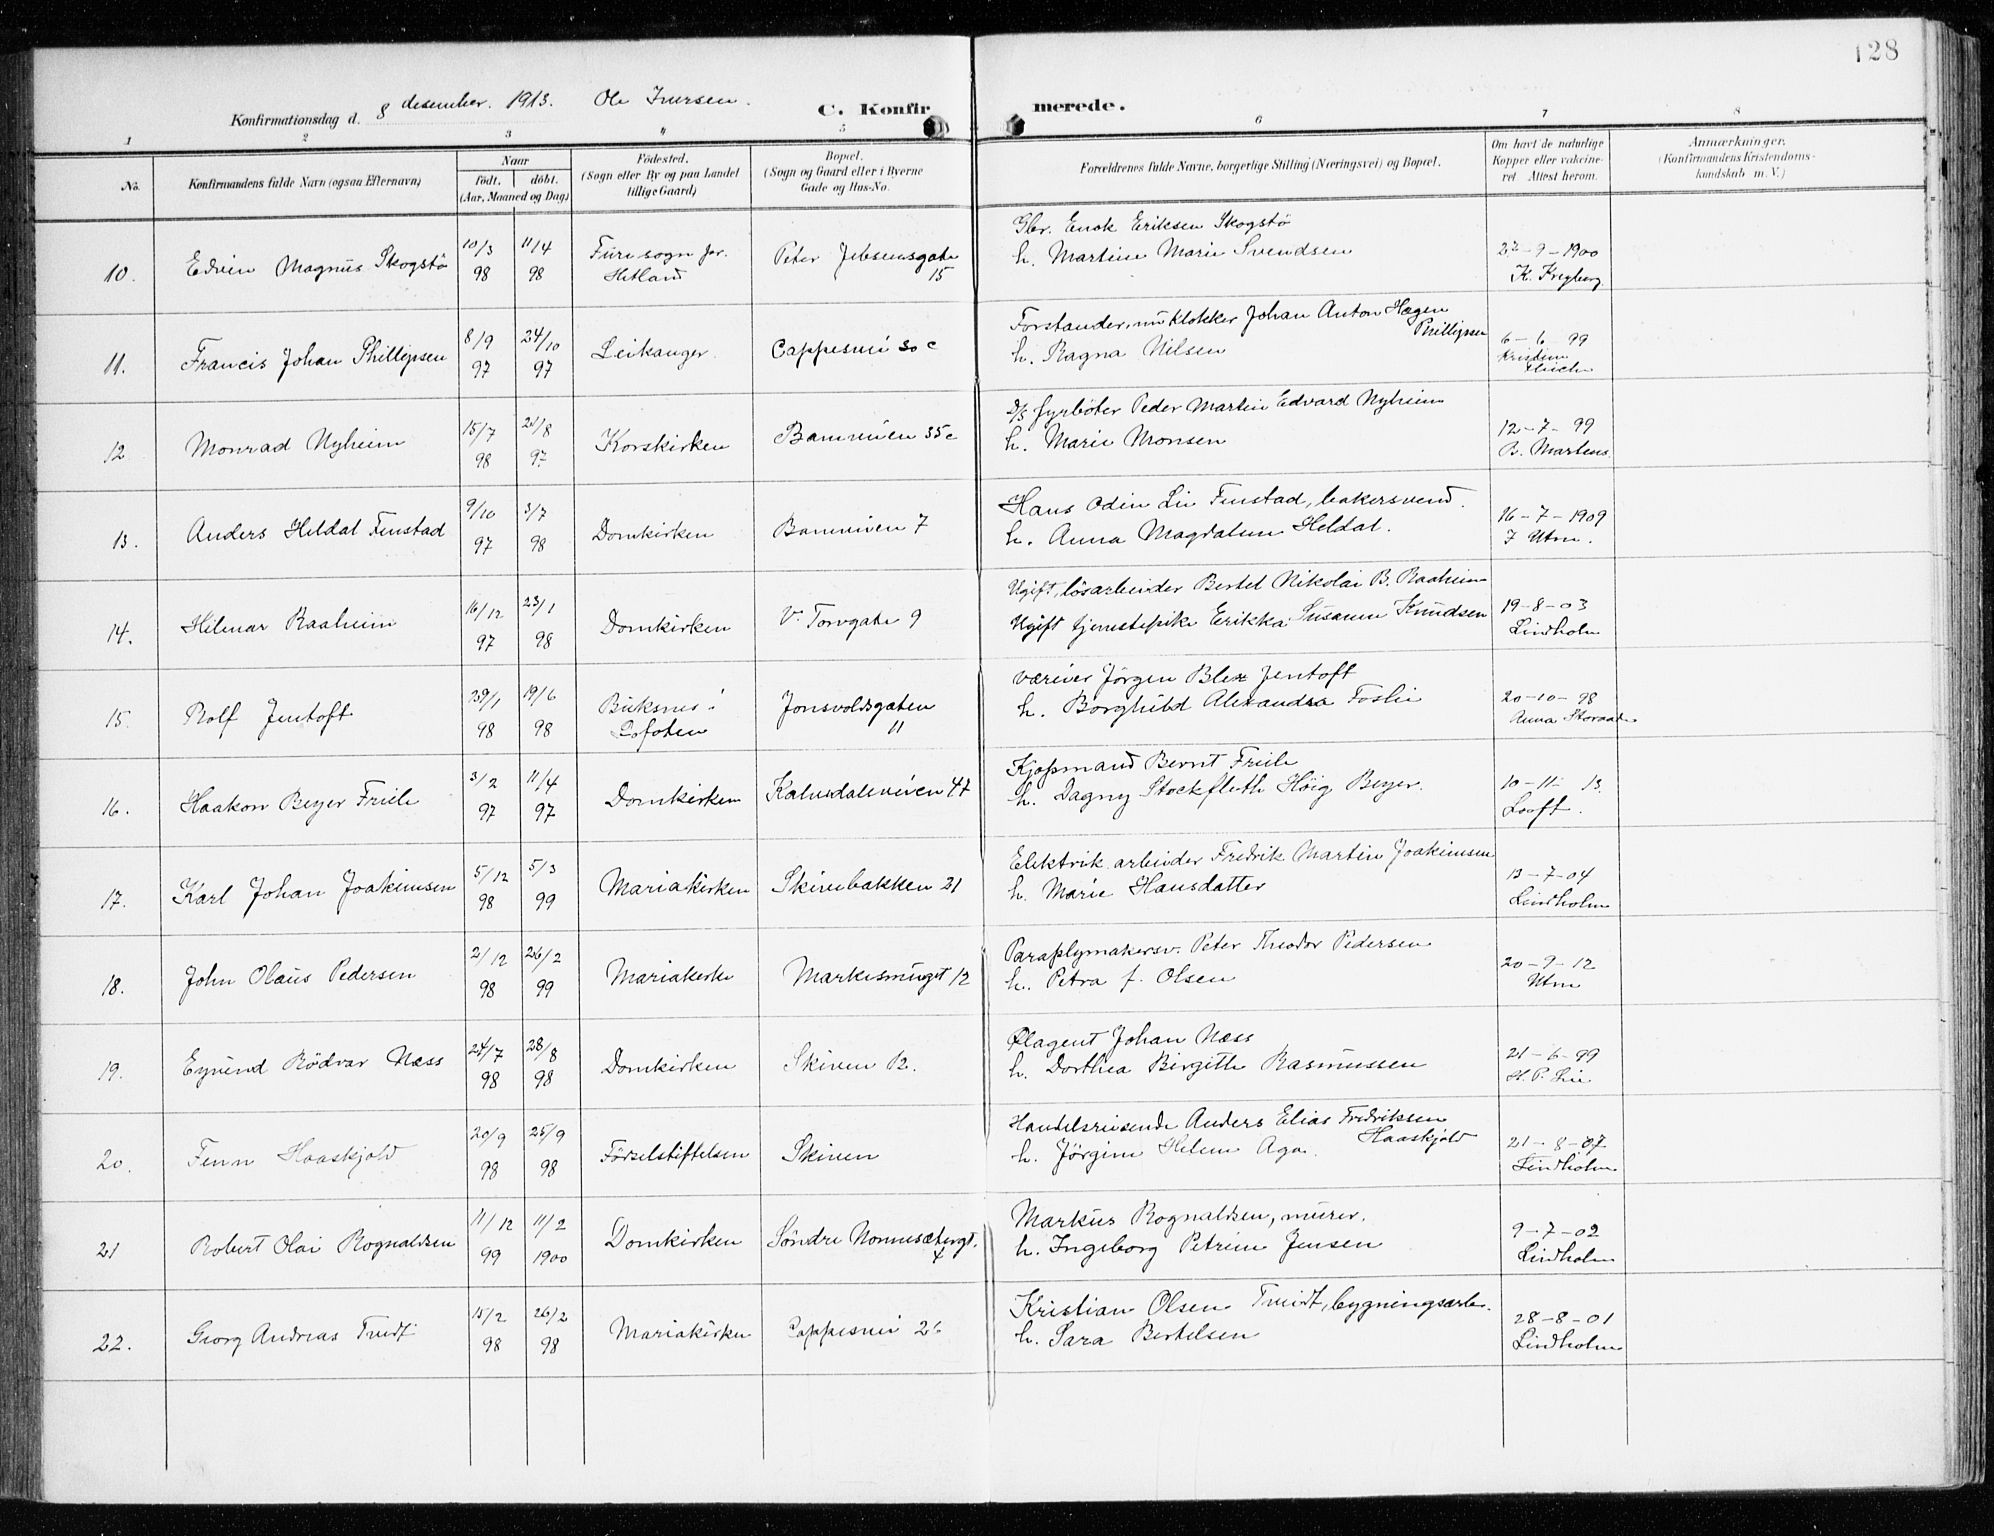 128
Konfirmationsdag d. 8 desember. 1913. Ole Iversen.
C. Konfirmerede.
1 2 3 4 5 6 7 8
No.
Konfirmandens fulde Navn (ogsaa Efternavn)
Naar
födt. döbt.
(Aar, Maaned og Dag)
Födested.
(Sogn eller By og paa Landet
tillige Gaard)
Bopæl.
(Sogn og Gaard eller i Byerne
Gade og Hus-No.
Forældrenes fulde Navne, borgerlige Stilling (Næringsvei) og Bopæl.
Om havt de naturlige
Kopper eller vakcine-
ret. Attest herom.
Anmærkninger.
(Konfirmandens Kristendoms-
kundskab m. V.)
10. Edvin Magnus Skogstö 10/3 98 11/4 98
Hetland
Peter Jebsensgate
15
Gbr. Enok Eriksen Skogstö
h. Martine Marie Svendsen
-9-1900
11. Francis Johan Phillipsen 8/9 97 24/10 97 Leikanger. Cappesvei 30 c
Forstander, nu klokker Johan Anton Hagen
Phillipsen
h. Ragna Nilsen
6-6-99
12 Monrad Nyheim 15/7 98 /8 97 Korskirken Baneveien 35c
D/S fyrböter Peder Martin Edvard Nyheim
h. Marie Monsen
12-7-99
B. Martens
13. Anders Heldal Finstad 9/10 97 3/7 98 Domkirken Baneveien 7
Hans Odin Lie Finstad, bakersvend.
h. Anna Magdalene Heldal.
16-7-1909
14. Hilmar Raaheim 16/12 97 23/1 98 Domkirken V. Torvgate 9
Ugift, lösarbeider Bertel Nikolai B. Raaheim
Ugift tjenestepike Erikka Susanne Knudsen
19-8-03
Lindholm
15. Rolf Jentoft 29/1 98 19/6 98 Buksnes i
Lofoten
Jonsvoldsgaten
11
væreier Jörgen Blix Jentoft
h. Borghild Alexandra Foslie
20-10-98
Anna
16. Haakon Beyer Friele 3/2 97 11/4 97 Domkirken Kalvedalsveien 47
Kjøpmand Bernt Friele
h. Dagny Stockfleth Höig Beyer.
10-11-13.
Looft.
17. Karl Johan Joakimsen 5/12 98 5/3 99 Mariakirken Skivebakken 21
Elektrik. arbeider Fredrik Martin Joakimsen
h. Marie Hansdatter
13-7-04
Lindholm
18. John Olaus Pedersen 2/12 98 26/2 99 Mariakirke Markesmuget 12
Paraplymakersv. Peter Theodor Pedersen
h. Petra f. Olsen
20-9-12
19. Eyvind Bödvar Næss 24/7 98 28/8 98 Domkirken Skiven 12.
Ølagent Johan Næss
h. Dorthea Birgitte Rasmussen
21-6-99
H. P. Lie
20. Finn Haaskjold 20/9 98 25/9 98 Förselstiftelsen Skiven
Handelsreisende Anders Elias Fredriksen
Haaskjold
h. Jörgine Helene Aga.
21-8-07
Lindholm
21 Robert Olai Rognaldsen 11/12 99 11/2 1900 Domkirken Söndre Nonnesætergt.
4
Markus Rognaldsen, murer.
h. Ingeborg Petrine Jensen
9-7-02
Lindholm
22. Georg Andreas Tveidt 15/2 98 26/2 98 Mariakirken Cappesvei
Kristian Olsen Tveidt, bygningsarb.
h. Sara Bertelsen
28-8-01
Lindholm